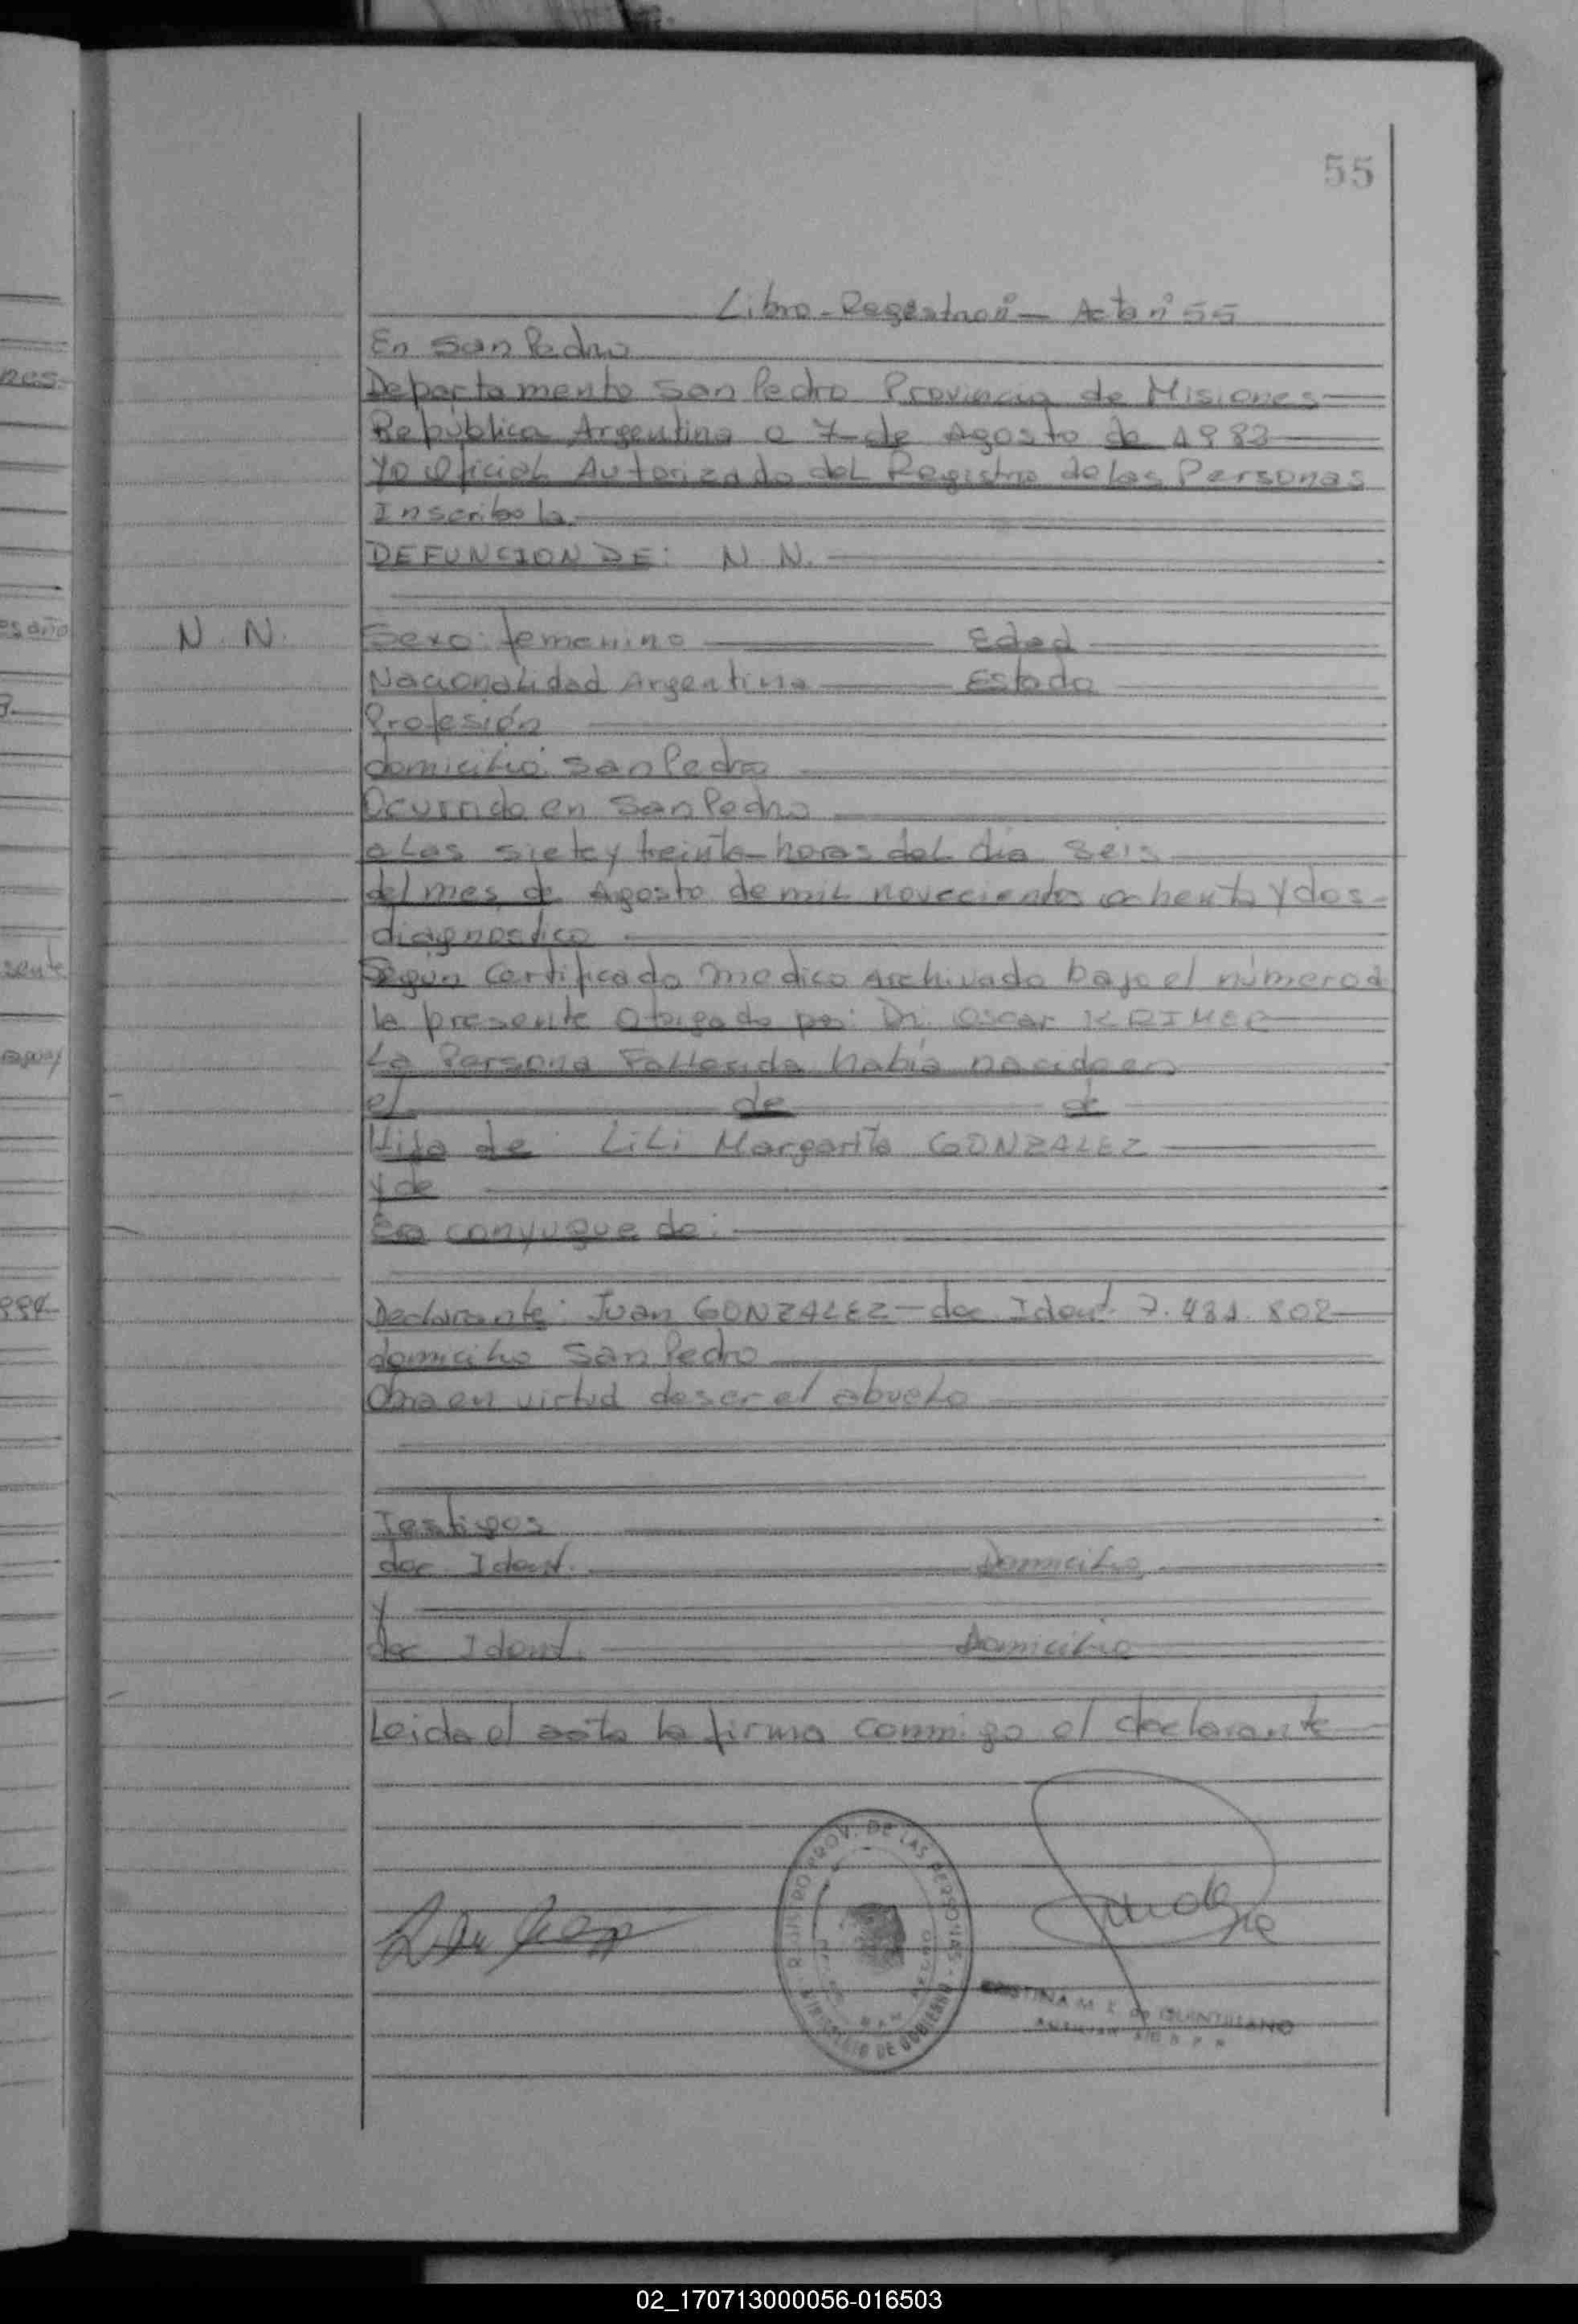 55
Libro - Registracion - Acta nº 55
En San Pedro
Departamento San Pedro Provincia de Misiones
República Argentina a 7 de Agosto de 1982
Yo Oficial Autorizado del Registro de las Personas
Inscribo la
DEFUNCION DE: N. N.
N. N.
Sexo: femenino Edad
Nacionalidad Argentina Estado
Profesión
domicilio: San Pedro
Ocurrido en San Pedro
a las siete y treinta horas del día Seis
del mes de Agosto de mil novecientos ochenta y dos
diagnostico
Según Certificado medico Archivado bajo el número d
la presente otorgado por: Dr. Oscar KRIMER
La Persona Fallecida había nacido en
el de de
Hija de: LiLi Margarita GONZALEZ
y de
Era conyugue de:
Declarante: Juan GONZALEZ - doc Ident. 7.481.802
domicilio San Pedro
Obra en virtud de ser el abuelo
Testigos
doc Ident. Domicilio
y
doc Ident. Domicilio
Leida el acta la firma conmigo el declarante
REGISTRO PROV. DE LAS PERSONAS
MINISTERIO DE GOBIERNO
CRISTINA M. de QUINTILIANO
02_170713000056-016503